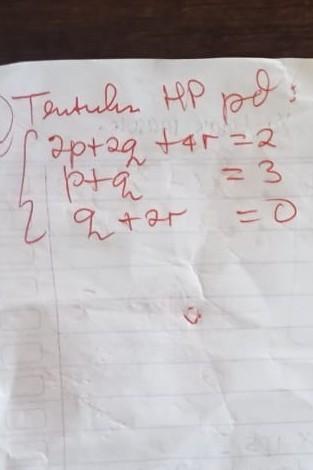 Tentukan HP pd :
2p+2q +4r = 2
p+q = 3
q +2r = 0